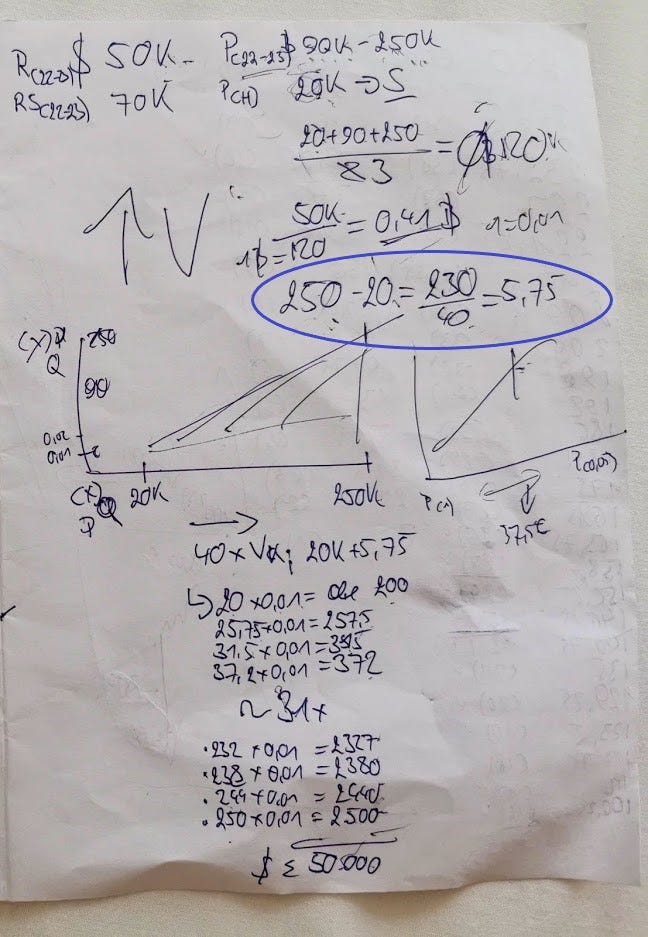 R(22-23)$ 50K- P(22-23)$ 90K-250K
RS(22-23) 70K P(H) 20K → S
20+90+250 / 3 = 120K
↑V 50K / 120 = 0,41 $ 1=0,01
1$=
250-20= 230/40 = 5,75
(X) Q 250
90
0,02
0,01
(X) Q 20K 250K P(H) P(0,05)
37,5€
40 x V; 20K+5,75
↳ 20 x0,01= 200
25,75x0,01=257,5
31,5 x 0,01=315
37,2x0,01=372
~31x
.232 x0,01 =2327
.238 x 0,01 =2380
.244x0,01 = 2440
.250x0,01 =2500
$ Σ 50.000